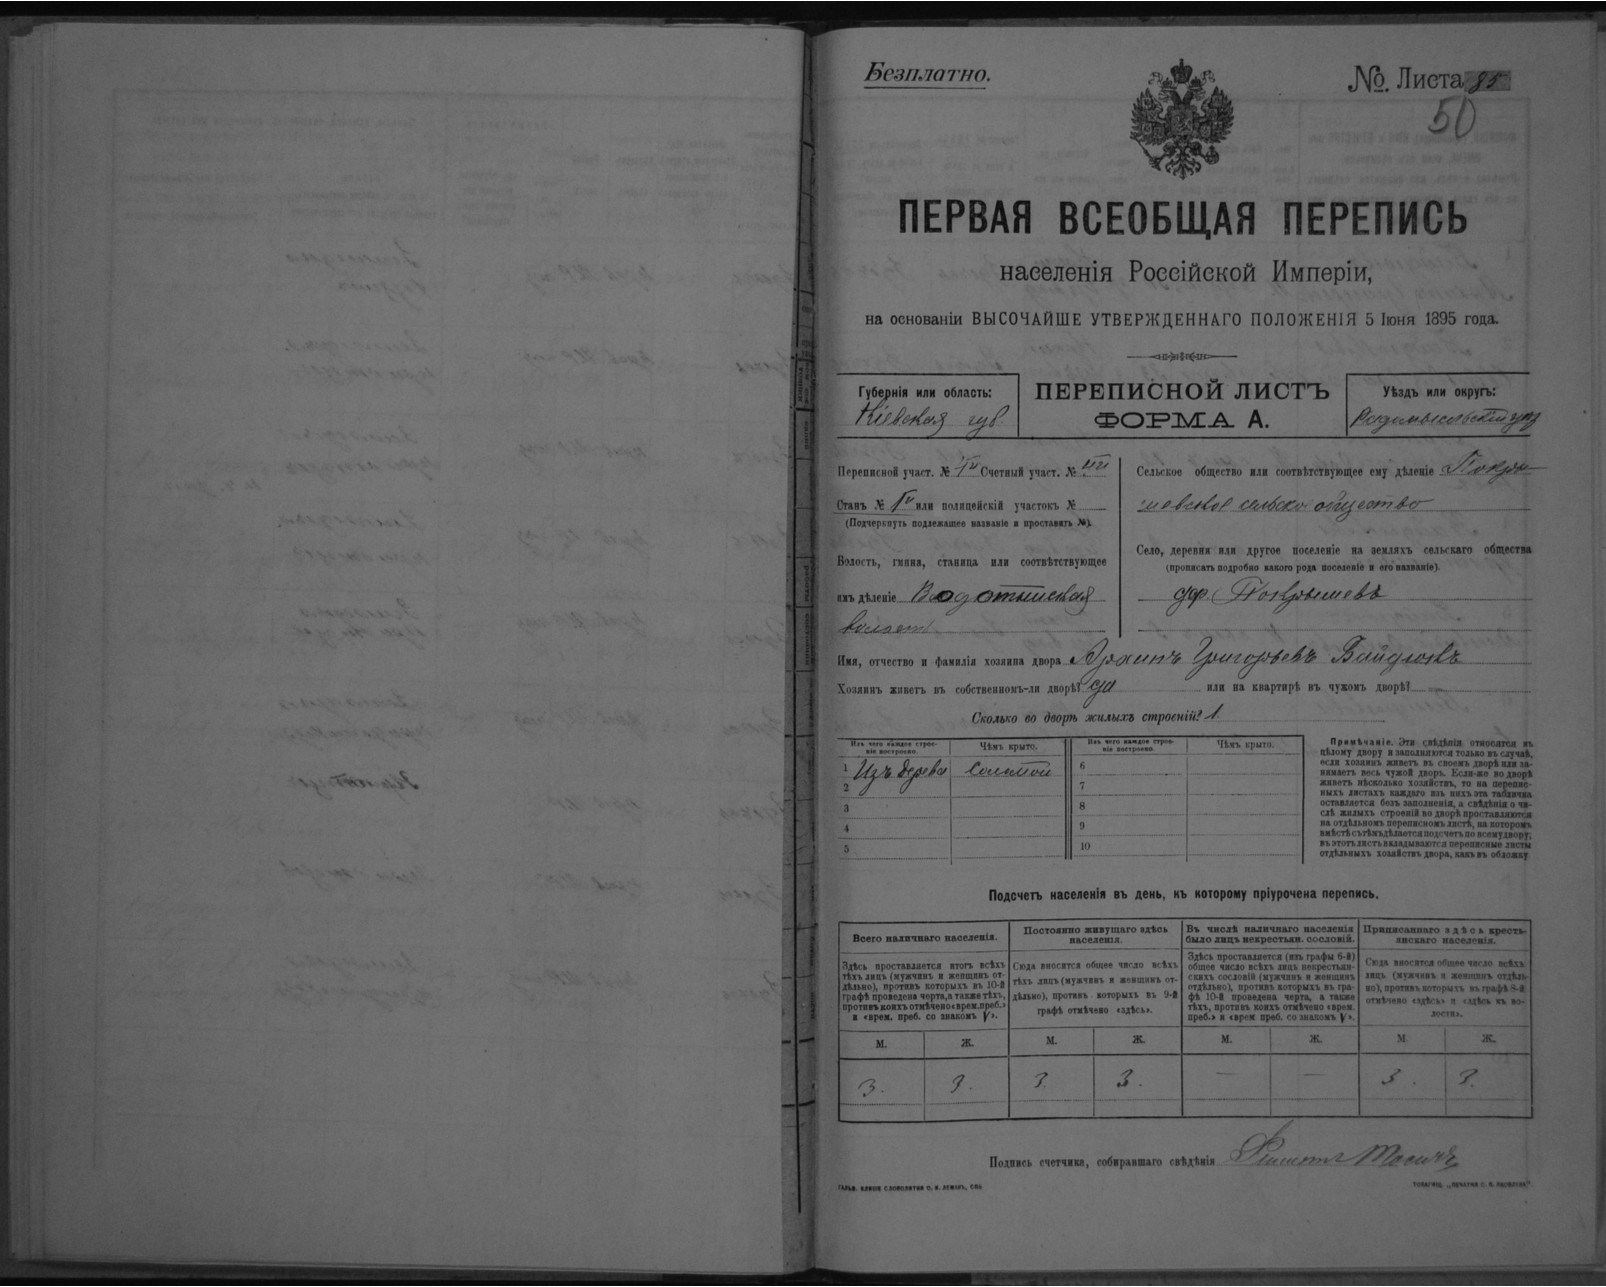 Безплатно.
№ Листа 85
50
ПЕРВАЯ ВСЕОБЩАЯ ПЕРЕПИСЬ
населенія Россійской Имперіи,
на основаніи ВЫСОЧАЙШЕ УТВЕРЖДЕННАГО ПОЛОЖЕНІЯ 5 Іюня 1895 года.
Губернія или область:
Кіевская губ.
ПЕРЕПИСНОЙ ЛИСТЪ
ФОРМА А.
Уѣздъ или округъ:
Радомысльскій уѣзд
Переписной участ. № Счетный участ. №
Станъ № или полицейскій участокъ №
(Подчеркнуть подлежащее названіе и проставить №).
Волость, гмина, станица или соотвѣтствующее
имъ дѣленіе Водотыйская
волость
Сельское общество или соотвѣтствующее ему дѣленіе Покры-
шевское сельское общество
Село, деревня или другое поселеніе на земляхъ сельскаго общества
(прописать подробно какого рода поселеніе и его названіе).
дер. Покрышевъ
Имя, отчество и фамилія хозяина двора Архипъ Григорьевъ
Хозяинъ живетъ въ собственномъ-ли дворѣ? да или на квартирѣ въ чужомъ дворѣ?
Сколько во дворѣ жилыхъ строеній? 1
Изъ чего каждое строе-
ніе построено.
Чѣмъ крыто.
Изъ чего каждое строе-
ніе построено.
Чѣмъ крыто.
1 Изъ дерева Соломой
2
3
4
5
6
7
8
9
10
Примѣчаніе. Эти свѣдѣнія относятся къ
цѣлому двору и заполняются только въ случаѣ,
если хозяинъ живетъ въ своемъ дворѣ или за-
нимаетъ весь чужой дворъ. Если-же во дворѣ
живетъ нѣсколько хозяйствъ, то на перепис-
ныхъ листахъ каждаго изъ нихъ эта табличка
оставляется безъ заполненія, а свѣдѣнія о чи-
слѣ жилыхъ строеній во дворѣ проставляются
на отдѣльномъ переписномъ листѣ, на которомъ
вмѣстѣ съ тѣмъ дѣлается подсчетъ по всему двору;
въ этотъ листъ вкладываются переписные листы
отдѣльныхъ хозяйствъ двора, какъ въ обложку
Подсчетъ населенія въ день, къ которому пріурочена перепись.
Всего наличнаго населенія.
Постоянно живущаго здѣсь
населенія.
Въ числѣ наличнаго населенія
было лицъ некрестьян. сословій.
Приписаннаго здѣсь кресть-
янскаго населенія.
Здѣсь проставляется итогъ всѣхъ
тѣхъ лицъ (мужчинъ и женщинъ от-
дѣльно), противъ которыхъ въ 10-й
графѣ проведена черта, а также тѣхъ,
противъ коихъ отмѣчено «врем. преб.»
и «врем. преб. со знакомъ V».
Сюда вносится общее число всѣхъ
тѣхъ лицъ (мужчинъ и женщинъ от-
дѣльно), противъ которыхъ въ 9-й
графѣ отмѣчено «здѣсь».
Здѣсь проставляется (изъ графы 6-й)
общее число всѣхъ лицъ некрестьян-
скихъ сословій (мужчинъ и женщинъ
отдѣльно), противъ которыхъ въ гра-
фѣ 10-й проведена черта, а также
тѣхъ, противъ коихъ отмѣчено «врем.
преб.» и «врем преб. со знакомъ V».
Сюда вносится общее число всѣхъ
лицъ (мужчинъ и женщинъ отдѣль-
но), противъ которыхъ въ графѣ 8-й
отмѣчено «здѣсь» и «здѣсь въ во-
лости».
М. Ж. М. Ж. М. Ж. М Ж.
3. 3. 3. 3. — — 3. 3.
Подпись счетчика, собиравшаго свѣдѣнія